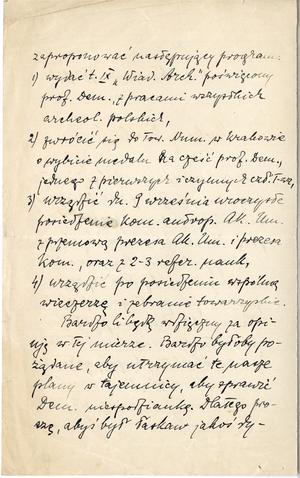 zaproponować następujący program:
1) wydać t. IX „Wiad. Arch." poświęcony
prof. Dem., z pracami wszystkich
archeol. polskich,
2) zwrócić się do Tow. Num. w Krakowie
o wybicie medalu na cześć prof. Dem.,
jednego z pierwszych i czynnych czł. T-wa,
3) urządzić dn. 9 września uroczyste
posiedzenie kom. antrop. Ak. Um.
z przemową prezesa Ak. Um. i prezesa
Kom., oraz z 2-3 refer. nauk,
4) urządzić po posiedzeniu wspólną
wieczerzę i zebranie towarzyskie.
Bardzo będę wdzięczny za opi-
nję w tej mierze. Bardzo byłoby po-
żądane, aby utrzymać te nasze
plany w tajemnicy, aby sprawić
Dem. niespodziankę. Dlatego pro-
szę, abyś był łaskaw jakoś dy-